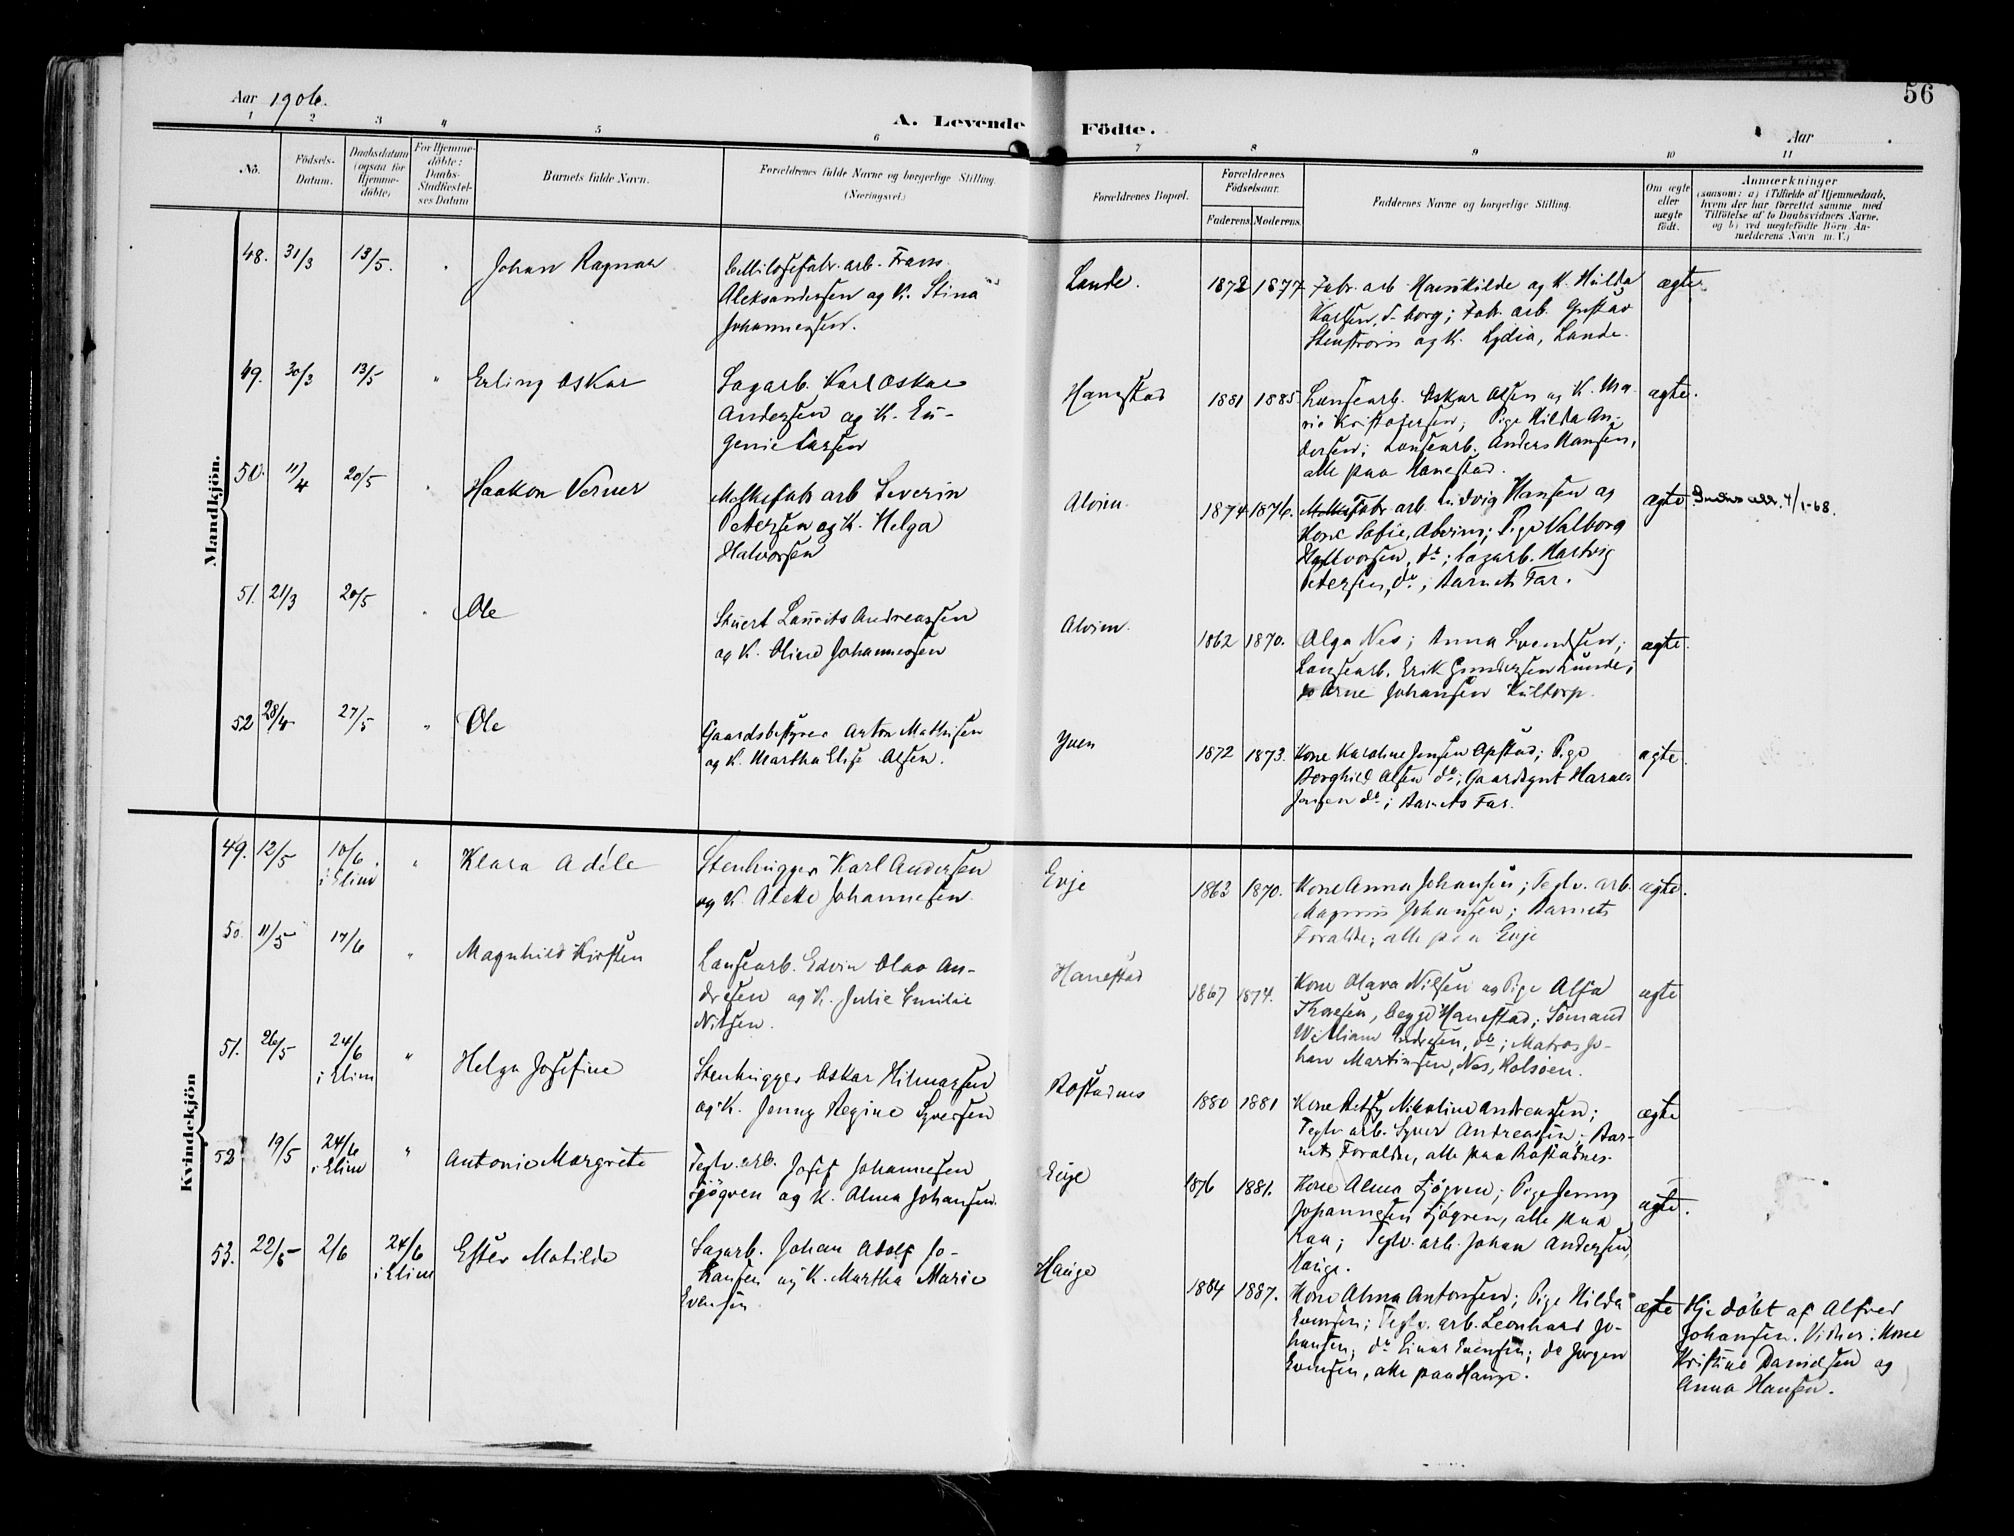 56
Aar 1906.
A. Levende Födte.
Aar
1 2 3 4 5 6 7 8 9 10 11
No.
Födsels-Datum.
Daabsdatum (ogsaa for Hjemmedöbte).
For Hjemmedöbte: Daabs-Stadfæstelses Datum
Barnets fulde Navn.
Forældrenes fulde Navne og borgerlige Stilling.
(Næringsvei.)
Forældrenes Bopæl.
Forældrenes Födselsaar.
Faderens. Moderens.
Faddernes Navne og borgerlige Stilling.
Om ægte eller uægte födt.
Anmærkninger
(saasom: a) i Tilfælde af Hjemmedaab, hvem der har forrettet samme med Tilföielse af to Daabsvidners Navne, og b) ved uægtefödte Börn Anmelderens Navn m. V.)
Mandkjön.
48. 31/3 13/5. " Johan Ragnar
Cellulosefabr. arb. Frans
Aleksandersen og K. Stina
Johannessen.
Lande. 1872 1877
Fabr. arb Hans Kilde og K. Hilda
Karlsen, S-borg; Fabr. arb. Gustav
Stenstrøm og K. Lydia, Lande.
ægte.
49. 30/3 13/5 " Erling Oskar
Sagarb. Karl Oskar
Andersen og K. Eu-
genie Larsen
Hanestad 1881 1885
Lænsearb. Oskar Olsen og K. Ma-
rie Kristofersen; Pige Hilda An-
dersen; Lænsearb. Anders Hansen,
alle paa Hanestad.
ægte.
50. 11/4 20/5 " Haakon Verner
Melkefabr arb Severin
Petersen og K. Helga
Halvorsen
Alvim. 1874 1876.
Melkefabr. arb. Ludvig Hansen og
Kone Sofie, Alvim; Pige Valborg
Halvorsen, do; Sagarb. Hartvig
Petersen, do; Barnets Far.
ægte
4/1-68.
51. 21/3 20/5 " Ole
Stuert Laurits Andreassen
og K. Oline Johannessen
Alvim. 1862 1870.
Olga Nes; Anna Svendsen;
Lænsearb. Erik Gundersen Lunde;
do Arne Johansen Kultorp.
ægte.
52 28/4 27/5 " Ole
Gaardsbestyrer Anton Mathisen
og K. Martha Elise Olsen.
Yven 1872 1873.
Kone Karoline Jensen Opstad; Pige
Borghild Olsen do; Gaardsgut Harald
Jensen do; Barnets Far.
ægte.
Kvindekjön
49. 12/5 10/6. i Elim " Klara Adéle
Stenhugger Karl Andersen
og K. Alette Johannesen.
Evje 1863 1870.
Kone Anna Johansen; Teglv. arb.
Magnus Johansen; Barnets
Foraldre; alle paa Evje
ægte.
50. 11/5 17/6 " Magnhild Kirsten
Lænsearb. Edvin Olao An-
dresen og K. Julie Emilie
Nilsen.
Hanestad 1867 1874.
Kone Olava Nilsen og Pige Alfa
Thoresen, begge Hanestad; Sømand
William Andresen, do; Matros Jo-
han Martinsen, Nes, Rolsøen.
ægte
51. 26/5 24/6 i Elim " Helga Josefine
Stenhugger Oskar Hilmarsen
og K. Jenny Regine Syversen
Rostadnes 1880 1881
Kone Betsy Nikoline Andreassen;
Teglv. arb. Syver Andreassen; Bar-
nets Foraldre, alle paa Rostadnes.
ægte
52. 19/5 24/6 i Elim " Antonie Margrete
Teglv. arb. Josef Johannesen
Sjögren og K. Alma Johansen.
Evje 1876 1881.
Kone Alma Sjögren; Pige Jenny
Johannesen Sjögren, alle paa
Raa; Teglv. arb. Johan Andersen,
Hauge.
ægte.
53. 22/5 2/6 24/6 i Elim Ester Matilde
Sagarb. Johan Adolf Jo-
hansen og K. Martha Marie
Evensen
Hauge 1884 1887.
Kone Alma Antonsen; Pige Hilda
Evensen; Teglv. arb. Leonhard Jo-
hansen; do Einar Evensen; do Jørgen
Evensen, alle paa Hauge.
ægte
Hje döbt af Alfred
Johansen. Vidner: Kone
Kristine Danielsen og
Anna Hansen.